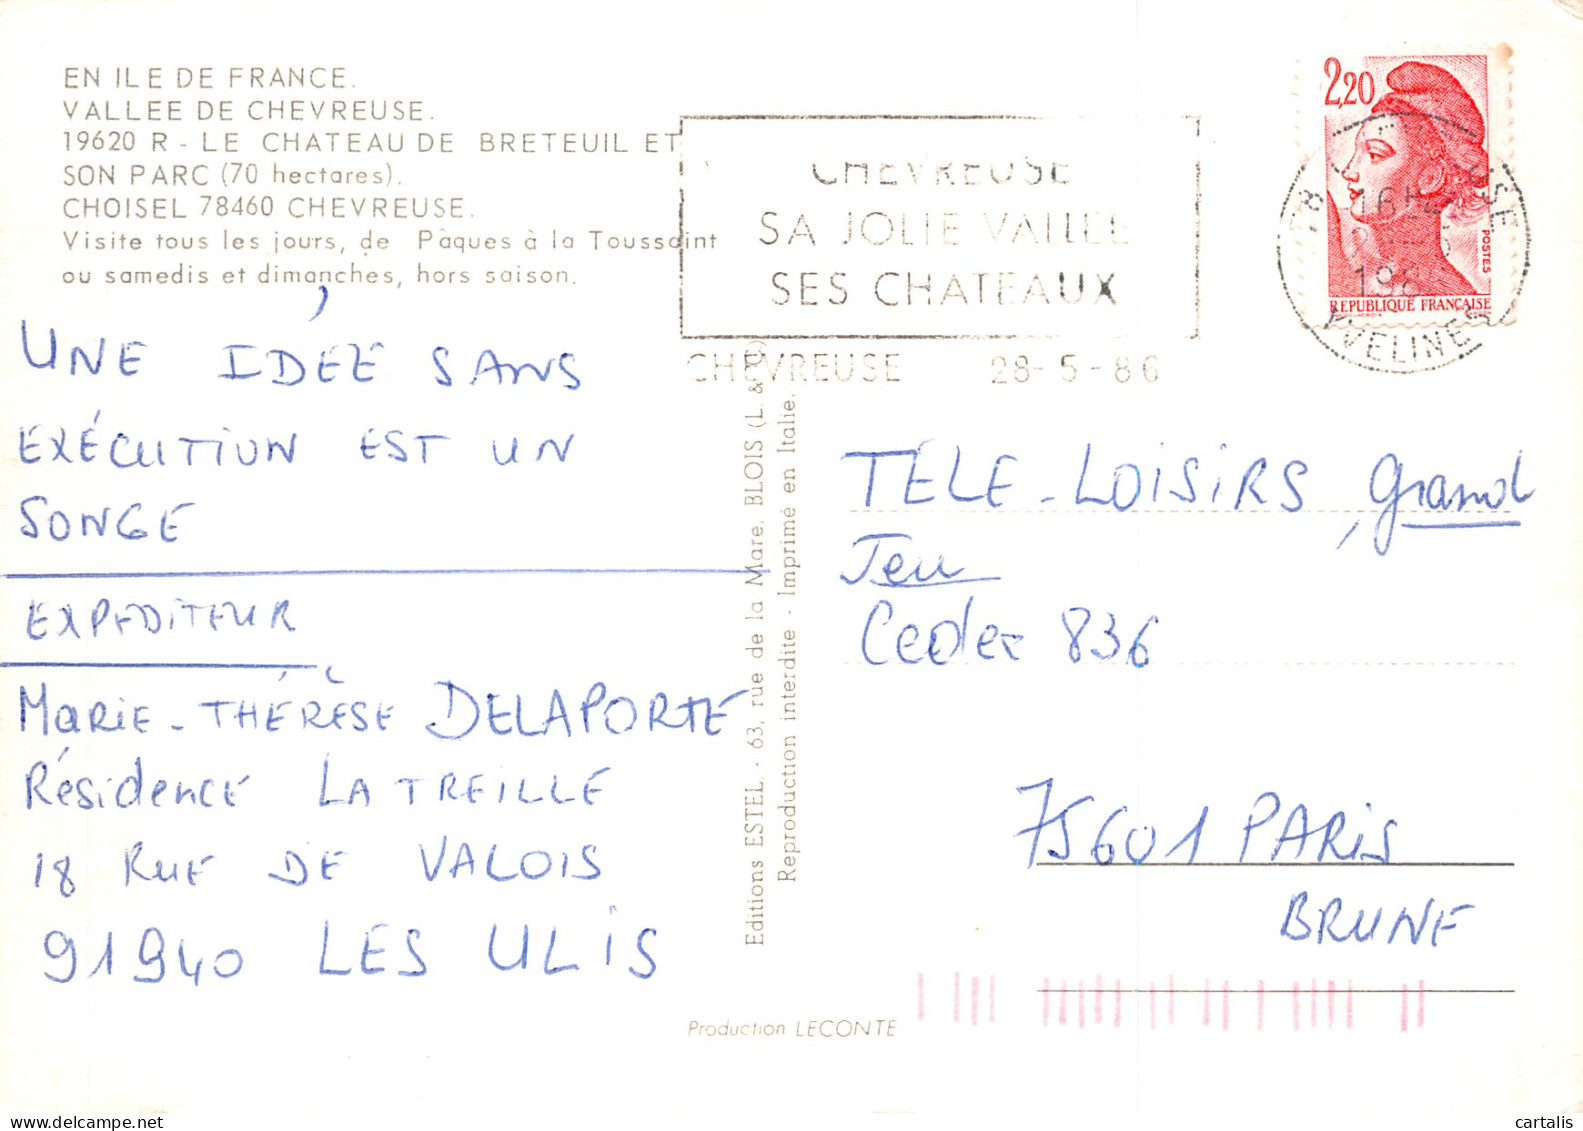 EN ILE DE FRANCE.
VALLEE DE CHEVREUSE.
19620 R - LE CHATEAU DE BRETEUIL ET
SON PARC (70 hectares).
CHOISEL 78460 CHEVREUSE.
Visite tous les jours, de Pâques à la Toussaint
ou samedis et dimanches, hors saison.
UNE IDÉE SANS
EXÉCUTION EST UN
SONGE
EXPEDITEUR
MARIE-THÉRÈSE DELAPORTE
Résidence LA TREILLE
18 RUE DE VALOIS
91940 LES ULIS
CHEVREUSE
SA JOLIE VALLEE
SES CHATEAUX
CHEVREUSE 28-5-86
2,20
POSTES
REPUBLIQUE FRANÇAISE
78
16H
YVELINES
Editions ESTEL, - 63, rue de la Mare, BLOIS (L. &
Reproduction interdite - Imprimé en Italie.
TELE-LOISIRS, Grand
Jeu
Cedex 836
75601 PARIS
BRUNE
Production LECONTE
cartalis